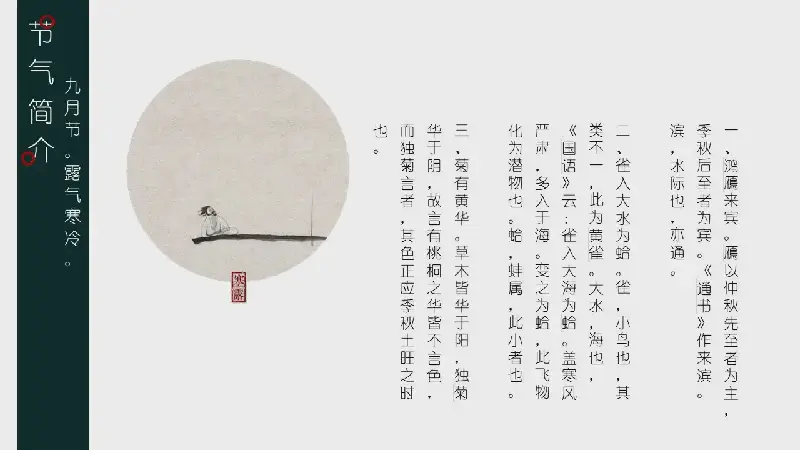 节气简介
九月节。露气寒冷。
一、鸿鴈来宾。鴈以仲秋先至者为主，
季秋后至者为宾。《通书》作来滨。
滨，水际也，亦通。
二、雀入大水为蛤。雀，小鸟也，其
类不一，此为黄雀。大水，海也，
《国语》云：雀入大海为蛤。盖寒风
严肃，多入于海。变之为蛤，此飞物
化为潜物也。蛤，蚌属，此小者也。
三、菊有黄华。草木皆华于阳，独菊
华于阴，故言有桃桐之华皆不言色，
而独菊言者，其色正应季秋土旺之时
也。
寒露